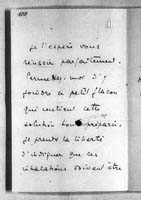 je l'espère vous
réussir parfaitement.
Permettez-moi d'y
joindre ce petit flacon
qui contient cette
solution toute préparée,
je prends la liberté
d'indiquer que ces
inhalations doivent être